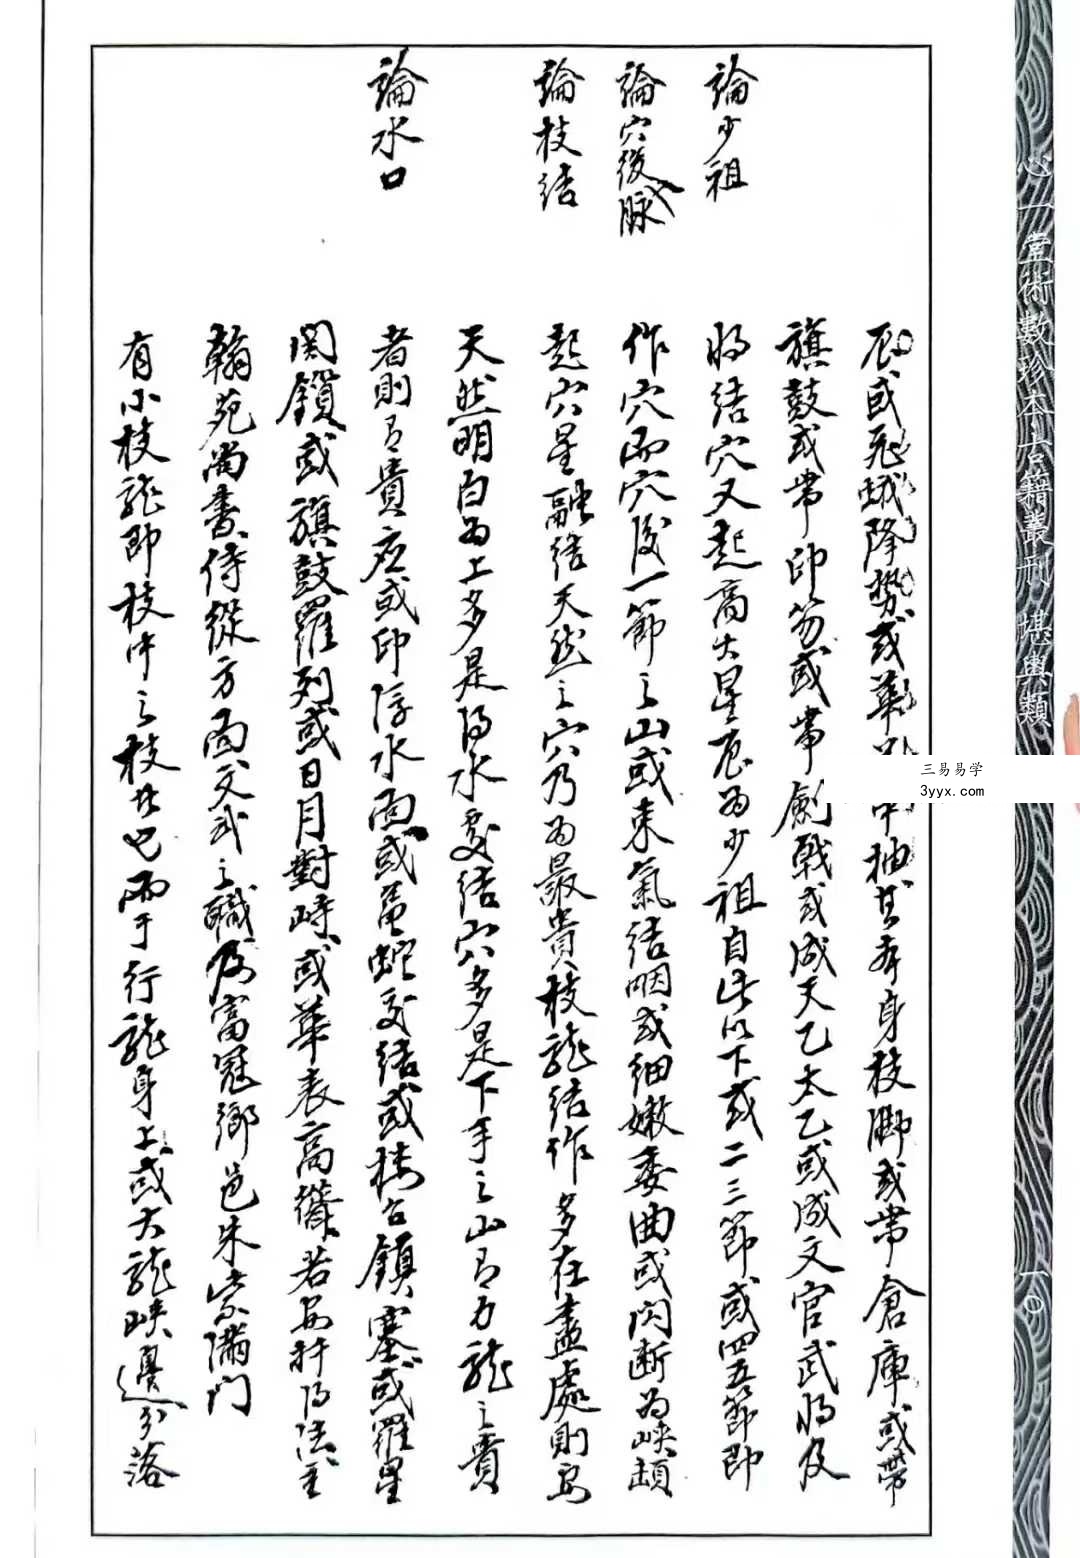 心一堂術數珍本古籍叢刊 堪輿類
一〇
三易易学
3yyx.com
論少祖
論穴後脉
論枝结
論水口
辰或飛蛾降勢或華 中抽其本身枝脚或带倉庫或带
旗鼓或带印笏或带劍戟或成天乙太乙或成文官武将及
将结穴又起高大星辰为少祖自此以下或二三節或四五節即
作穴而穴後一節之山或束氣结咽或细嫩委曲或闪断为峡
起穴星融结天然之穴乃为最贵枝龍结作多在盡處則
天然明白为上多是得水交结穴多是下手之山有力龍之贵
者則有贵应或印浮水面或龜蛇交结或楼台鎮塞或羅星
関鎖或旗鼓羅列或日月對峙或華表高 若安扦得法主
翰苑尚書侍從方面文武之職及富冠鄉邑朱紫滿門
有小枝龍即枝中之枝者也而于行龍身上或大龍峡邊分落